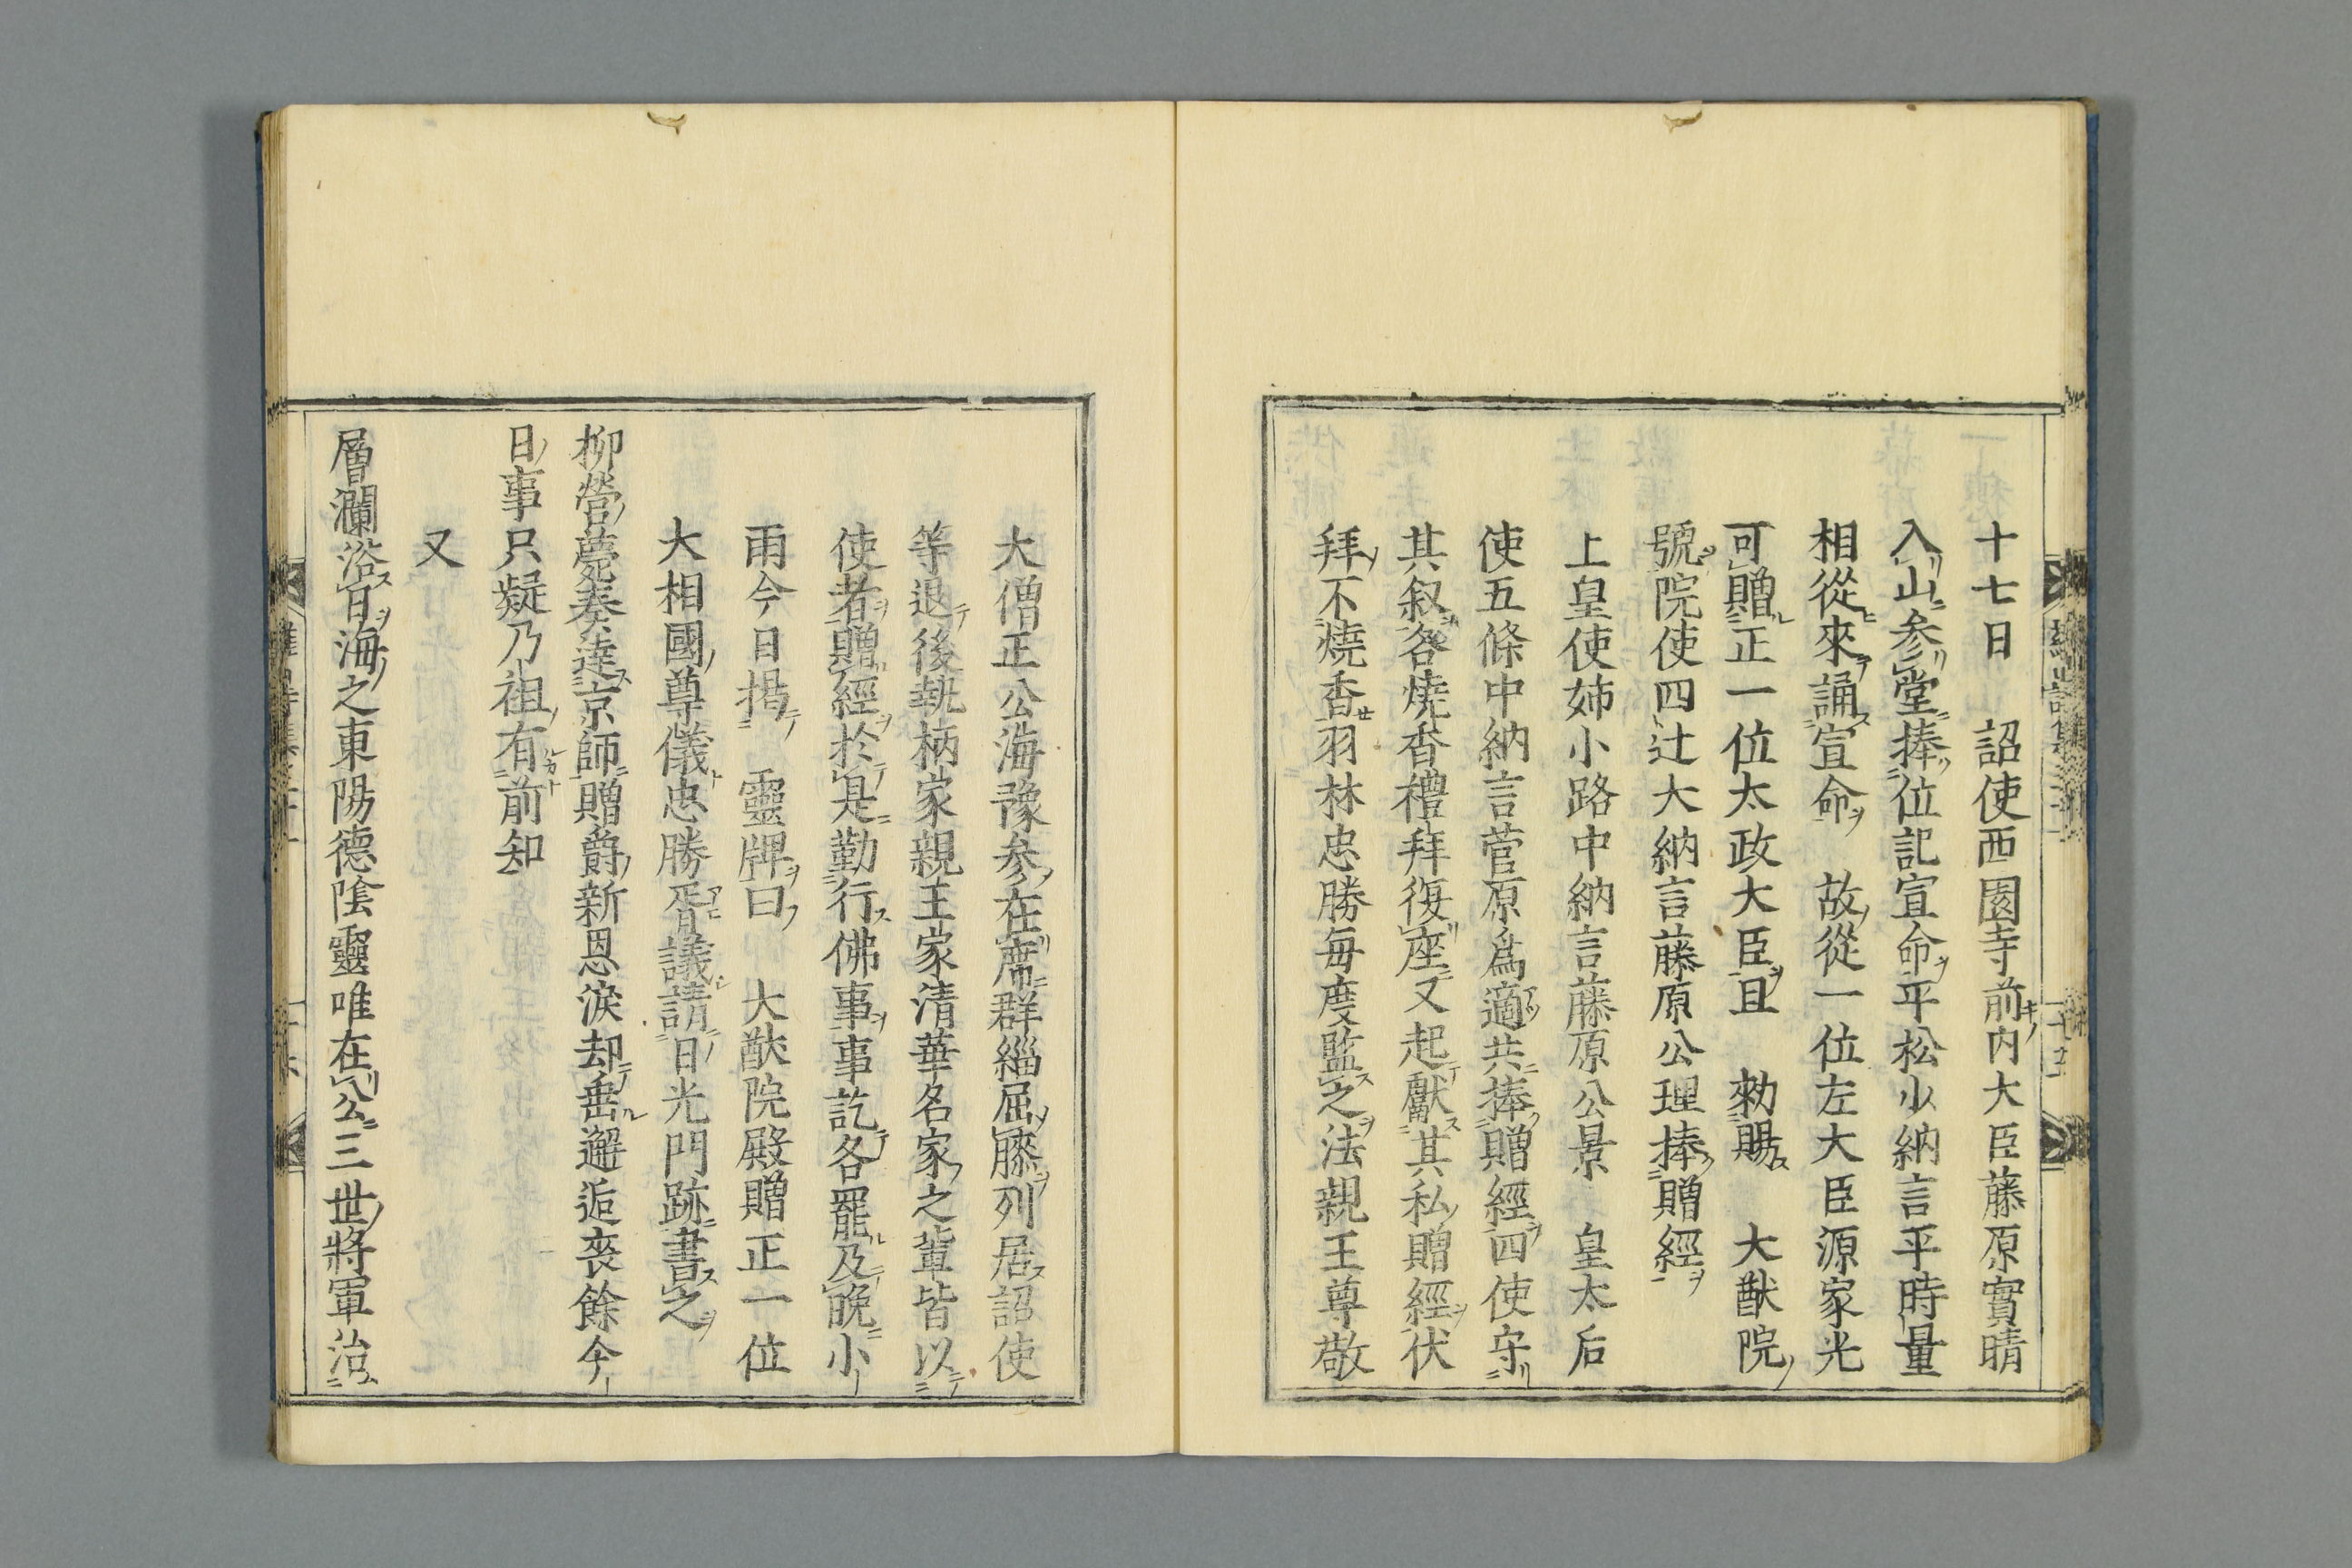 十七日　詔使西園寺前内大臣藤原實晴
入山参堂捧位記宣命平松少納言平時量
相從來誦宣命　故從一位左大臣源家光
可贈正一位太政大臣且　勅賜　大猷院
號院使四辻大納言藤原公理捧贈經
上皇使姉小路中納言藤原公景　皇太后
使五條中納言菅原爲適共捧贈經四使守
其叙各燒香禮拜復座又起獻其私贈經伏
拜不燒香羽林忠勝毎度監之法親王尊敬
大僧正公海豫参在席群緇屈膝列居詔使
等退後執柄家親王家清華名家之輩皆以
使者贈經於是勤行佛事事訖各罷及晩小
雨今日揭　靈牌曰　大猷院殿贈正一位
大相國尊儀忠勝胥議請日光門跡書之
柳營薨奏達京師贈爵新恩淚却垂邂逅喪餘今
日事只疑乃祖有前知
又
層瀾浴日海之東陽德陰靈唯在公三世將軍治